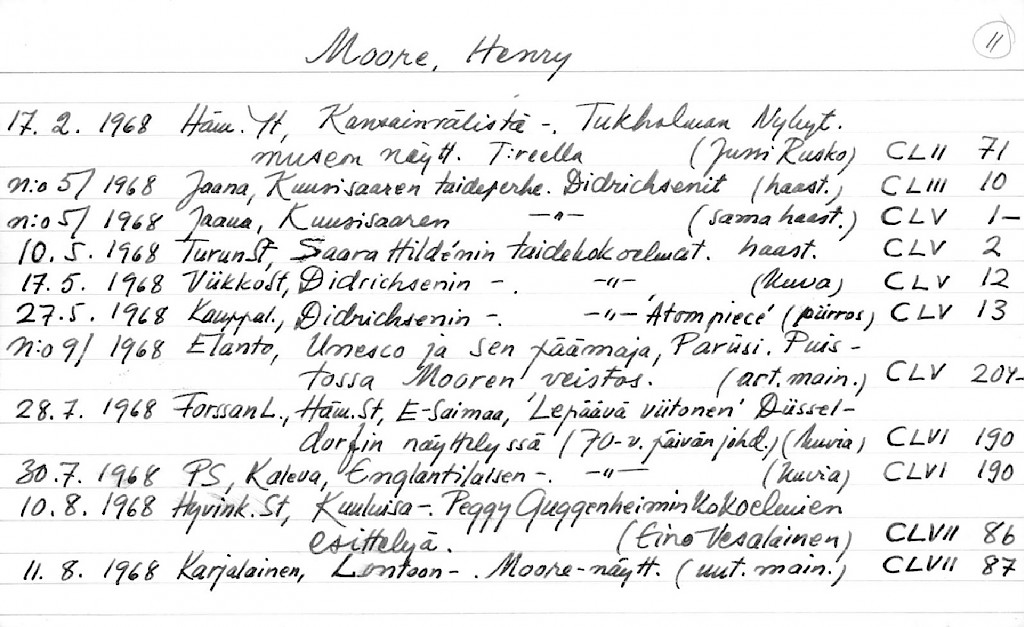 11
Moore, Henry
17. 2. 1968 Häm. Yt, Kansainvälistä -. Tukholman Nykyt.
museon näytt. T:reella (Jussi Rusko) CLII 71
n:o 5/ 1968 Jaana, Kuusisaaren taideperhe. Didrichsenit (haast.) CLIII 10
n:o 5/ 1968 Jaana, Kuusisaaren —"— (sama haast.) CLV 1-
10. 5. 1968 Turun St, Saara Hildénin taidekokoelmat. haast. CLV 2
17. 5. 1968 ViikkoSt, Didrichsenin -. -"- (kuva) CLV 12
27. 5. 1968 Kauppal., Didrichsenin -. -"- 'Atom piece' (piirros) CLV 13
n:o 9/ 1968 Elanto, Unesco ja sen päämaja, Pariisi. Puis-
tossa Mooren veistos. (art. main.) CLV 204-
28. 7. 1968 Forssan L., Häm. St, E-Saimaa, 'Lepäävä viitonen' Düssel-
dorfin näyttelyssä (70-v. päivän johd.) (kuvia) CLVI 190
30. 7. 1968 PS, Kaleva, Englantilaisen -. -"- (kuvia) CLVI 190
10. 8. 1968 Hyvink. St, Kuuluisa -. Peggy Guggenheimin kokoelmien
esittelyä. (Eino Vesalainen) CLVII 86
11. 8. 1968 Karjalainen, Lontoon - . Moore-näytt. (uut. main.) CLVII 87